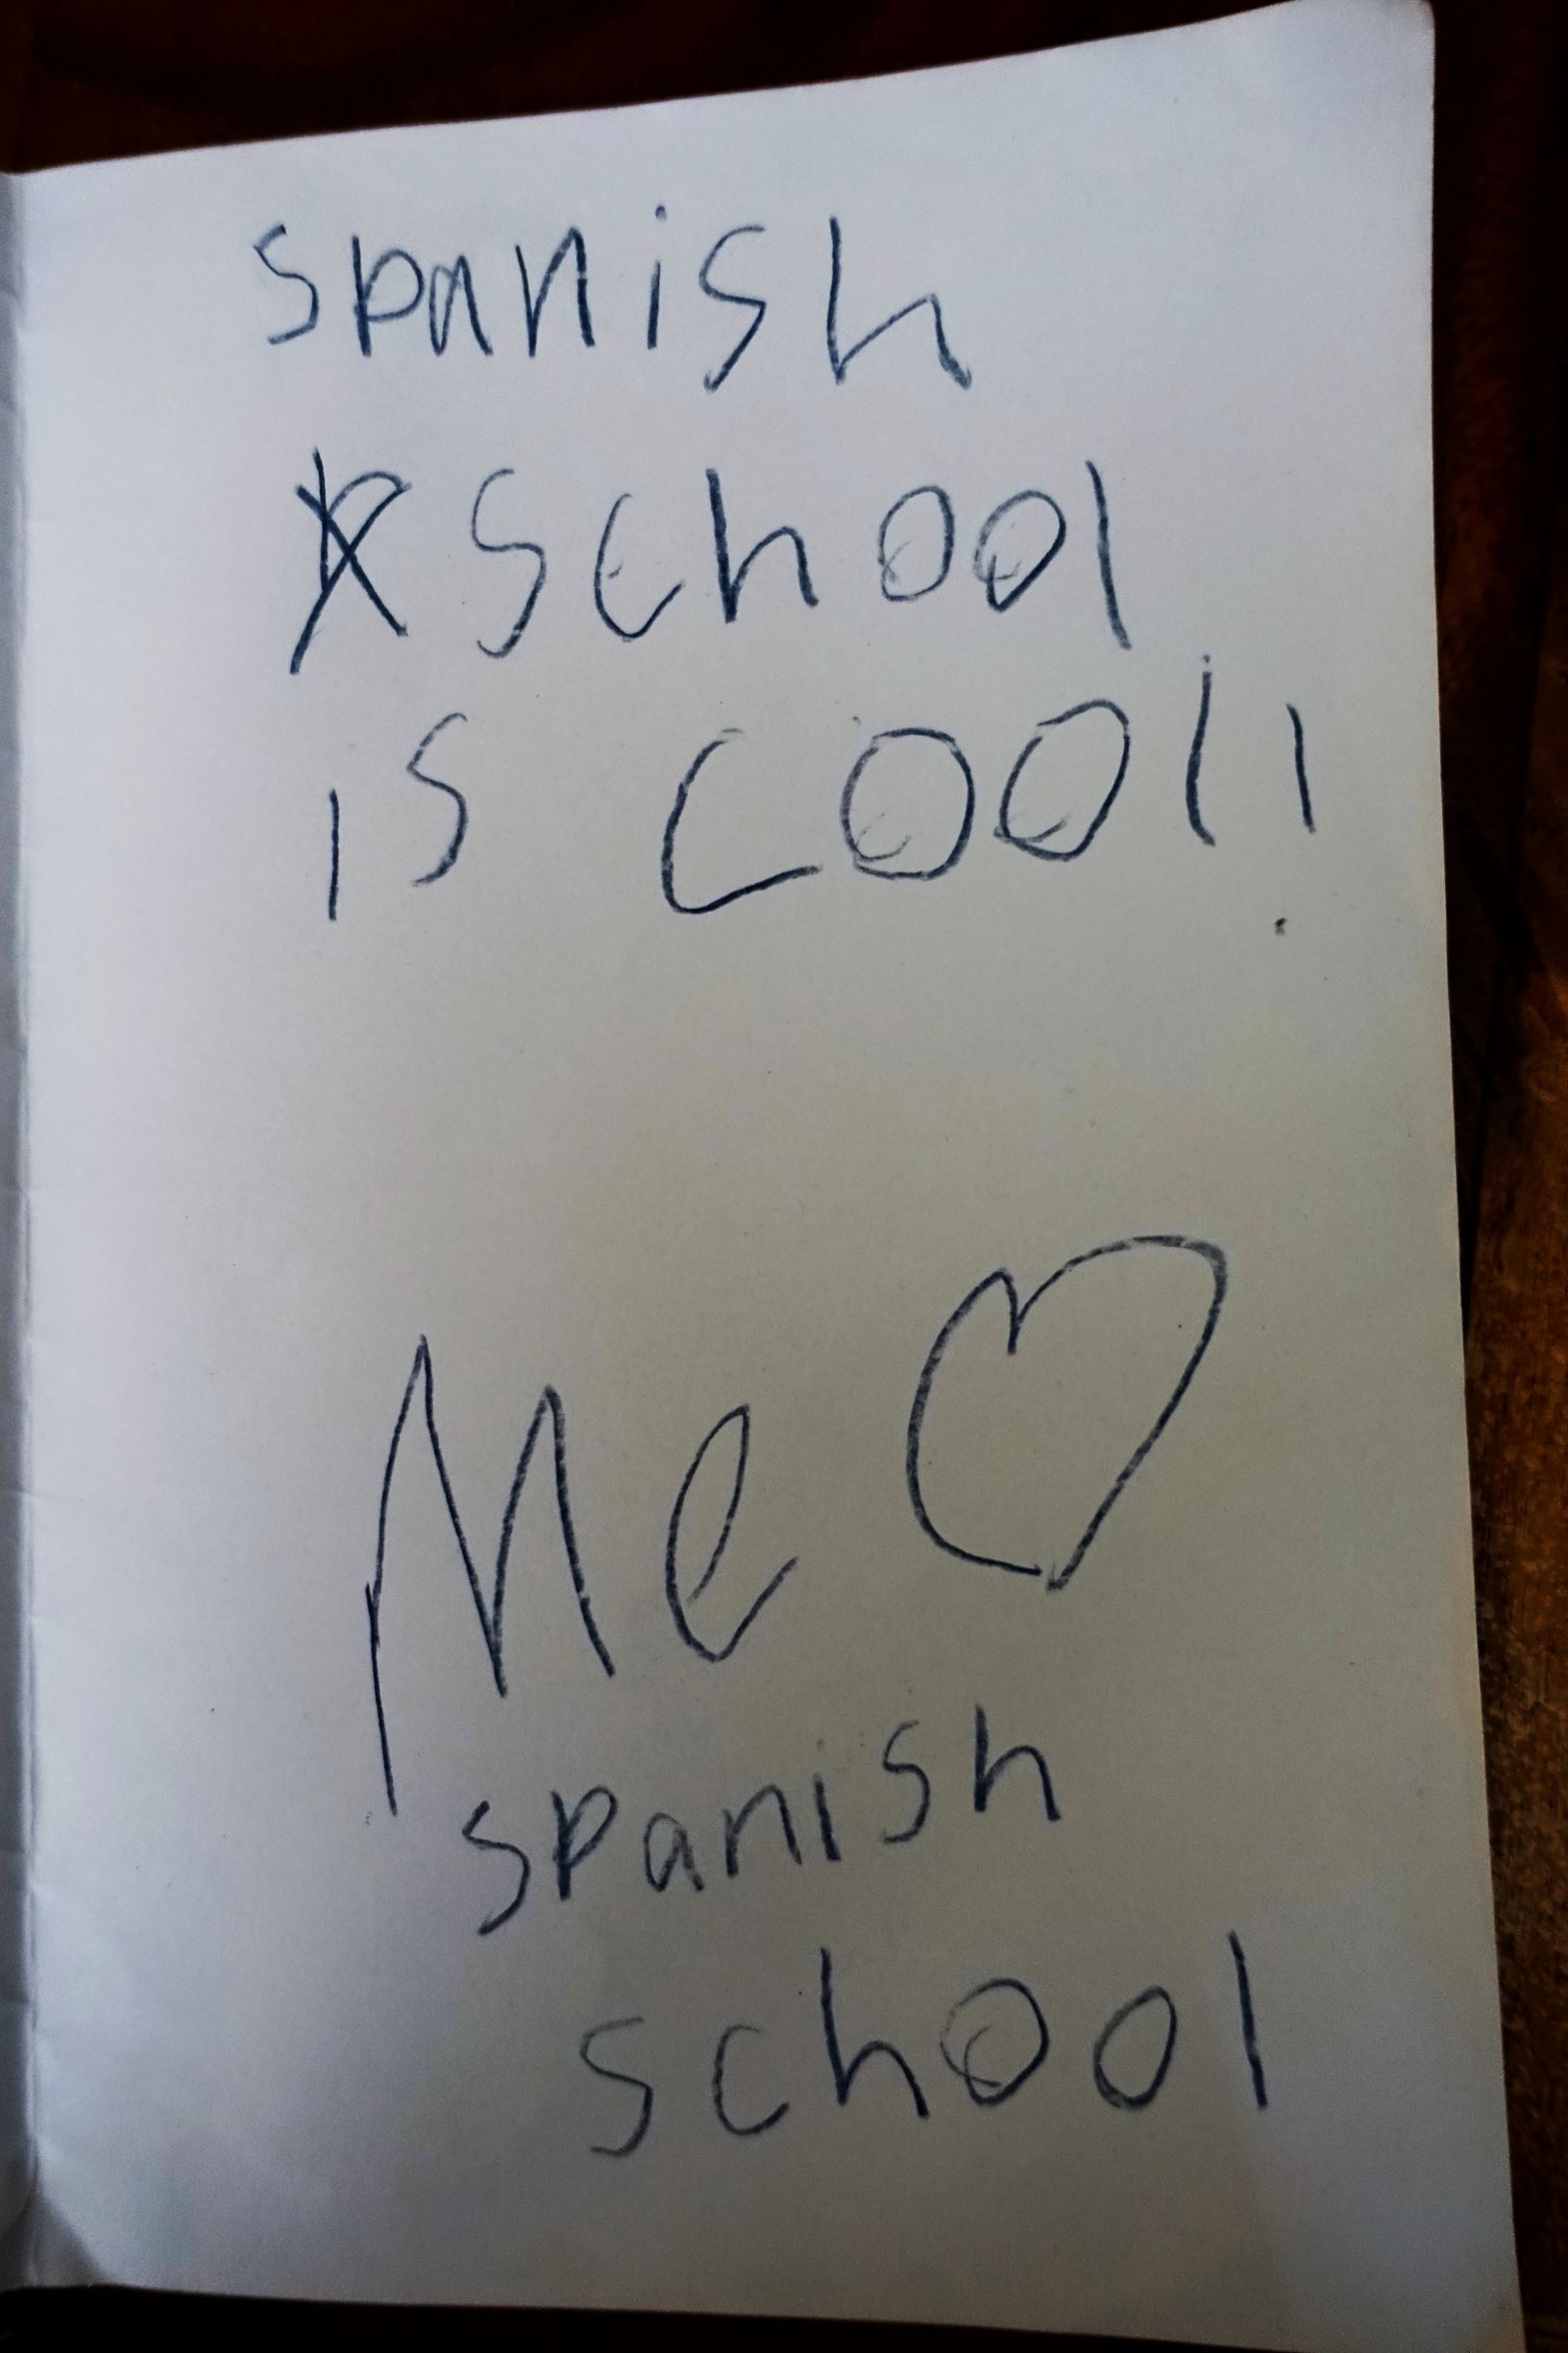 spanish
school
is cool!
Me ♡
spanish
school